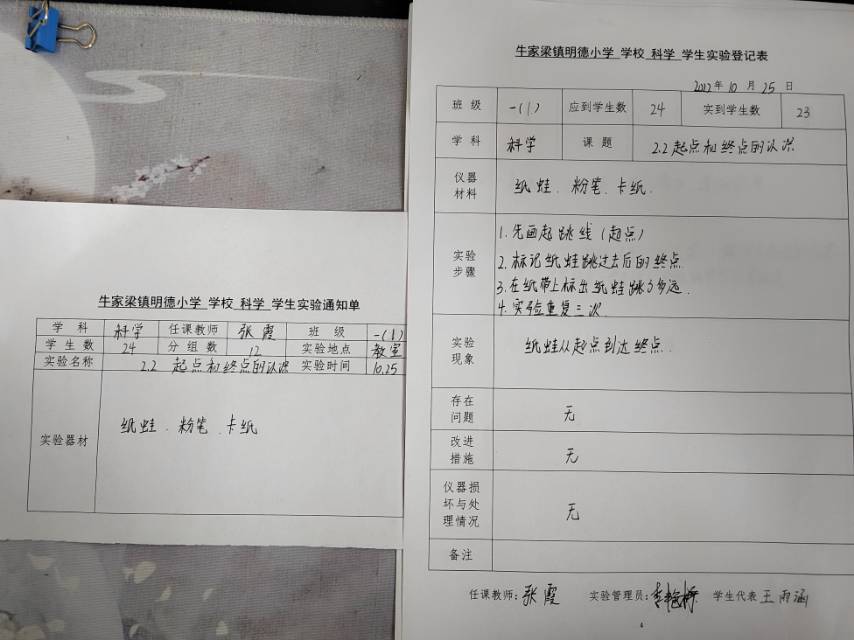 牛家梁镇明德小学 学校 科学 学生实验通知单
学 科 科学 任课教师 张霞 班 级 一(1)
学 生 数 24 分 组 数 12 实验地点 教室
实验名称 2.2 起点和终点的认识 实验时间 10.25
实验器材 纸蛙、粉笔、卡纸
牛家梁镇明德小学 学校 科学 学生实验登记表
2022年 10 月 25 日
班 级 一(1) 应到学生数 24 实到学生数 23
学 科 科学 课 题 2.2起点和终点的认识
仪器
材料
纸蛙、粉笔、卡纸.
实验
步骤
1.先画起跳线(起点)
2.标记纸蛙跳过去后的终点
3.在纸带上标出纸蛙跳了多远.
4.实验重复三次.
实验
现象
纸蛙从起点到达终点.
存在
问题
无
改进
措施
无
仪器损
坏与处
理情况
无
备注
任课教师:张霞 实验管理员: 学生代表王雨涵